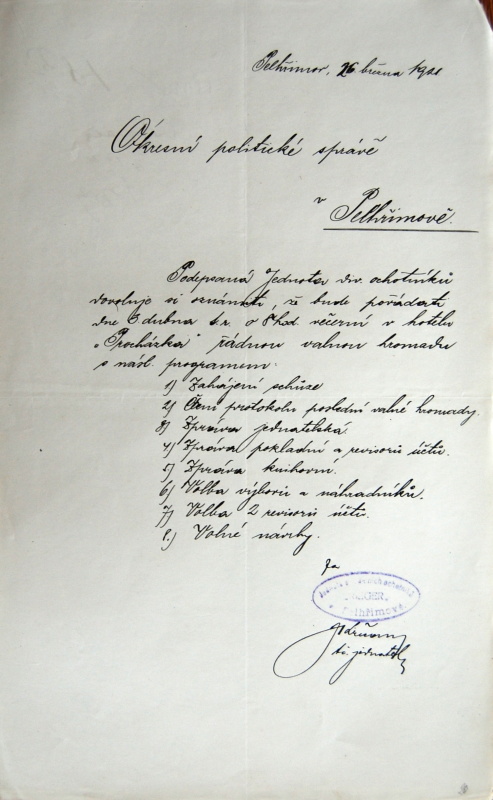 Pelhřimov, 26 března 1921
Okresní politické správě
v Pelhřimově.
Podepsaná Jednota div. ochotníků
dovoluje si oznámiti, že bude pořádati
dne 3. dubna t. r. o 8 hod. večerní v hotelu
„Procházka" řádnou valnou hromadu
s násl. programem:
1) Zahájení schůze
2) Čtení protokolu poslední valné hromady.
3) Zpráva jednatelská.
4) Zpráva pokladní a revisorů účtů.
5) Zpráva knihovní.
6) Volba výboru a náhradníků.
7) Volba 2 revisorů účtů.
8.) Volné návrhy.
Za
v Pelhřimově.
jednatel